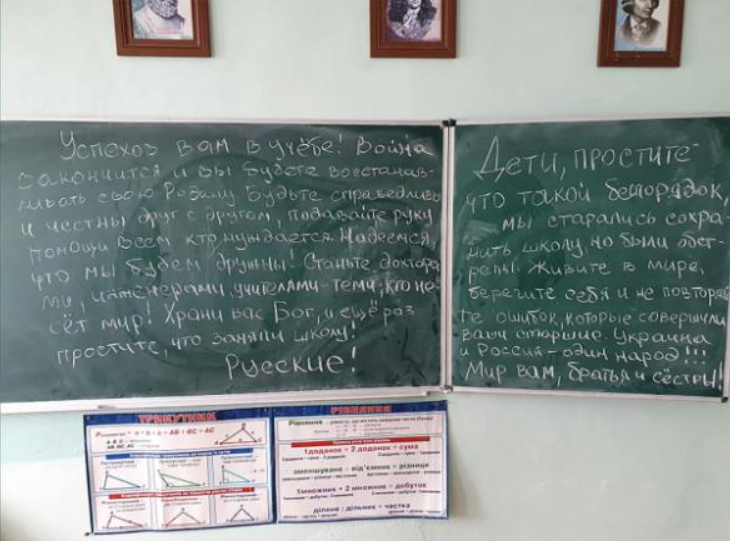 Успехов вам в учёбе! Война
закончится и вы будете восстанав-
ливать свою Родину. Будьте справедливы
и честны друг с другом, подавайте руку
помощи всем кто нуждается. Надеемся,
что мы будем дружны! Станьте доктора-
ми, инженерами, учителями - теми, кто не-
сёт мир! Храни вас Бог, и ещё раз
простите, что заняли школу!
Русские!
Дети, простите-
что такой беспорядок,
мы старались сохра-
нить школу, но были обст-
релы. Живите в мире,
берегите себя и не повторяй-
те ошибок, которые совершили
ваши старшие. Украина
и Россия - один народ!!!
Мир вам, братья и сёстры!
ТРИКУТНИК
= a + b + c = AB + BC + AC
РІВНЯННЯ
1доданок + 2 доданок = сума
зменшуване - від'ємник = різниця
1множник • 2 множник = добуток
ділене : дільник = частка